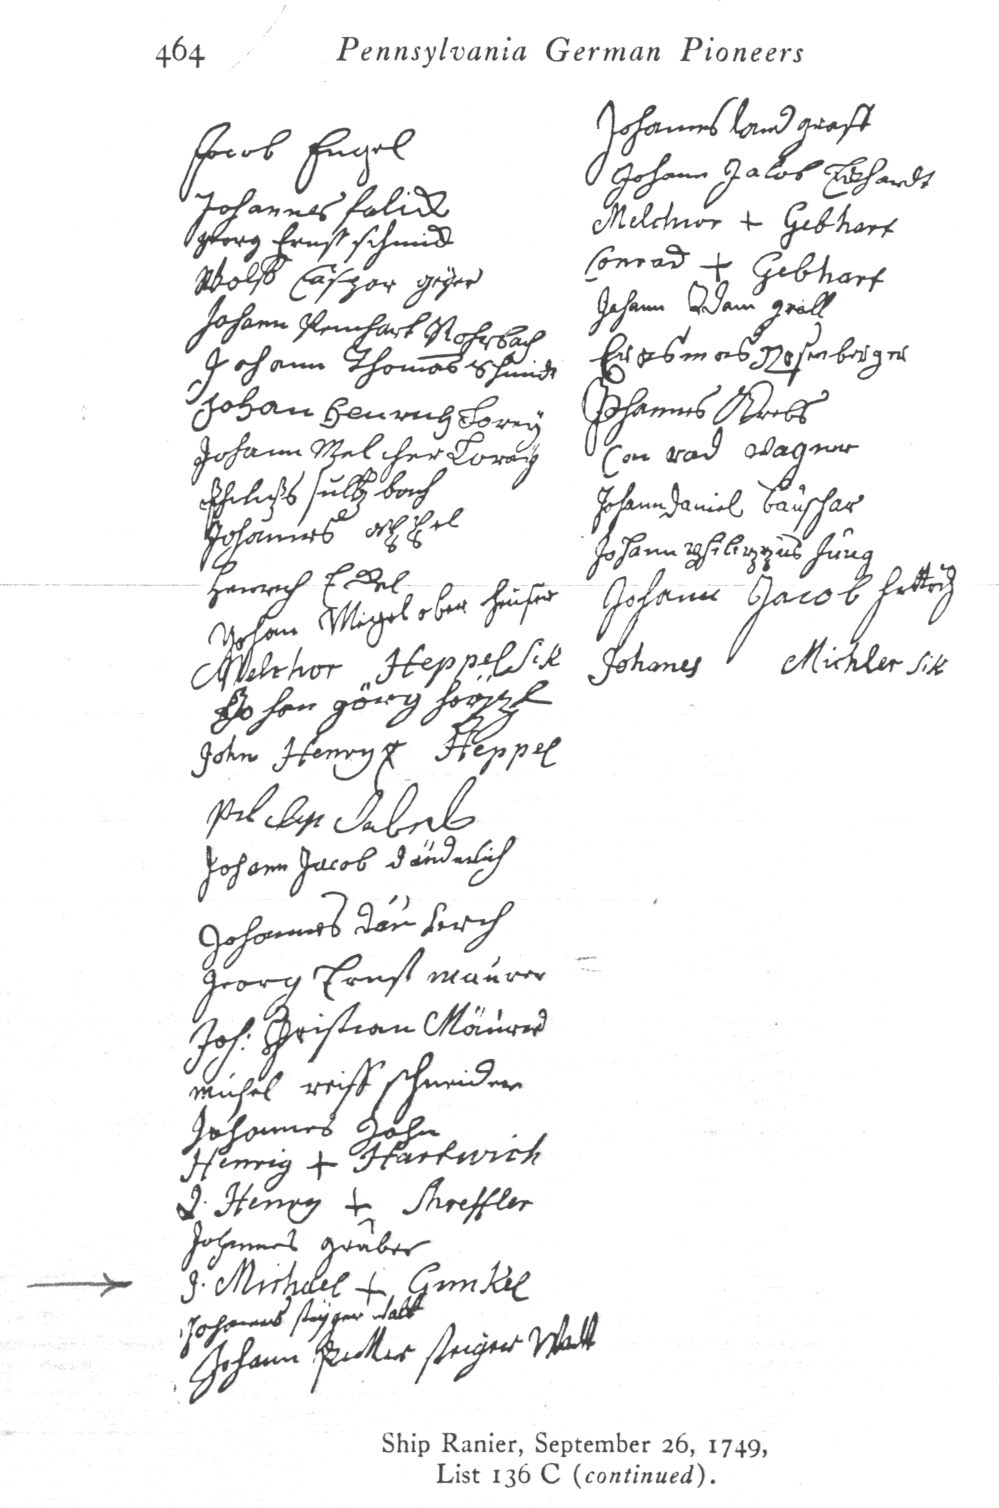 464 Pennsylvania German Pioneers
Jacob Engel
Johannes
georg Ernst schmid
Wolff Casspar geyer
Johann Reinhart Rohrbach
Johann Thomas Schmidt
Johan Henrich Lorey
Johann Melcher Lorey
sultzbach
Johannes
Henrich Edel
Johan Migel oberheuser
Melchor Heppel sik
Johan görg
John Henry + Heppel
Johann Jacob däuderich
Johannes
Georg Ernst maurer
Joh: Christian Mäurer
michel reiff schneider
Johannes Zahn
Henrig + Hartwich
J. Henry + Shreffler
Johannes gräber
J. Michael + Gunkel
Johannes steyger walt
Johann Petter steiger Walt
Johannes land graff
Johann Jacob Eckhardt
Melchior + Gebhart
Conrad + Gebhart
Johann Adam gröll
Erasmas Rosenberger
Johannes Krebs
Con rad wagner
Johann daniel bäuschar
Johann philippus Jüng
Johann Jacob
Johanes Michler sik
Ship Ranier, September 26, 1749,
List 136 C (continued).